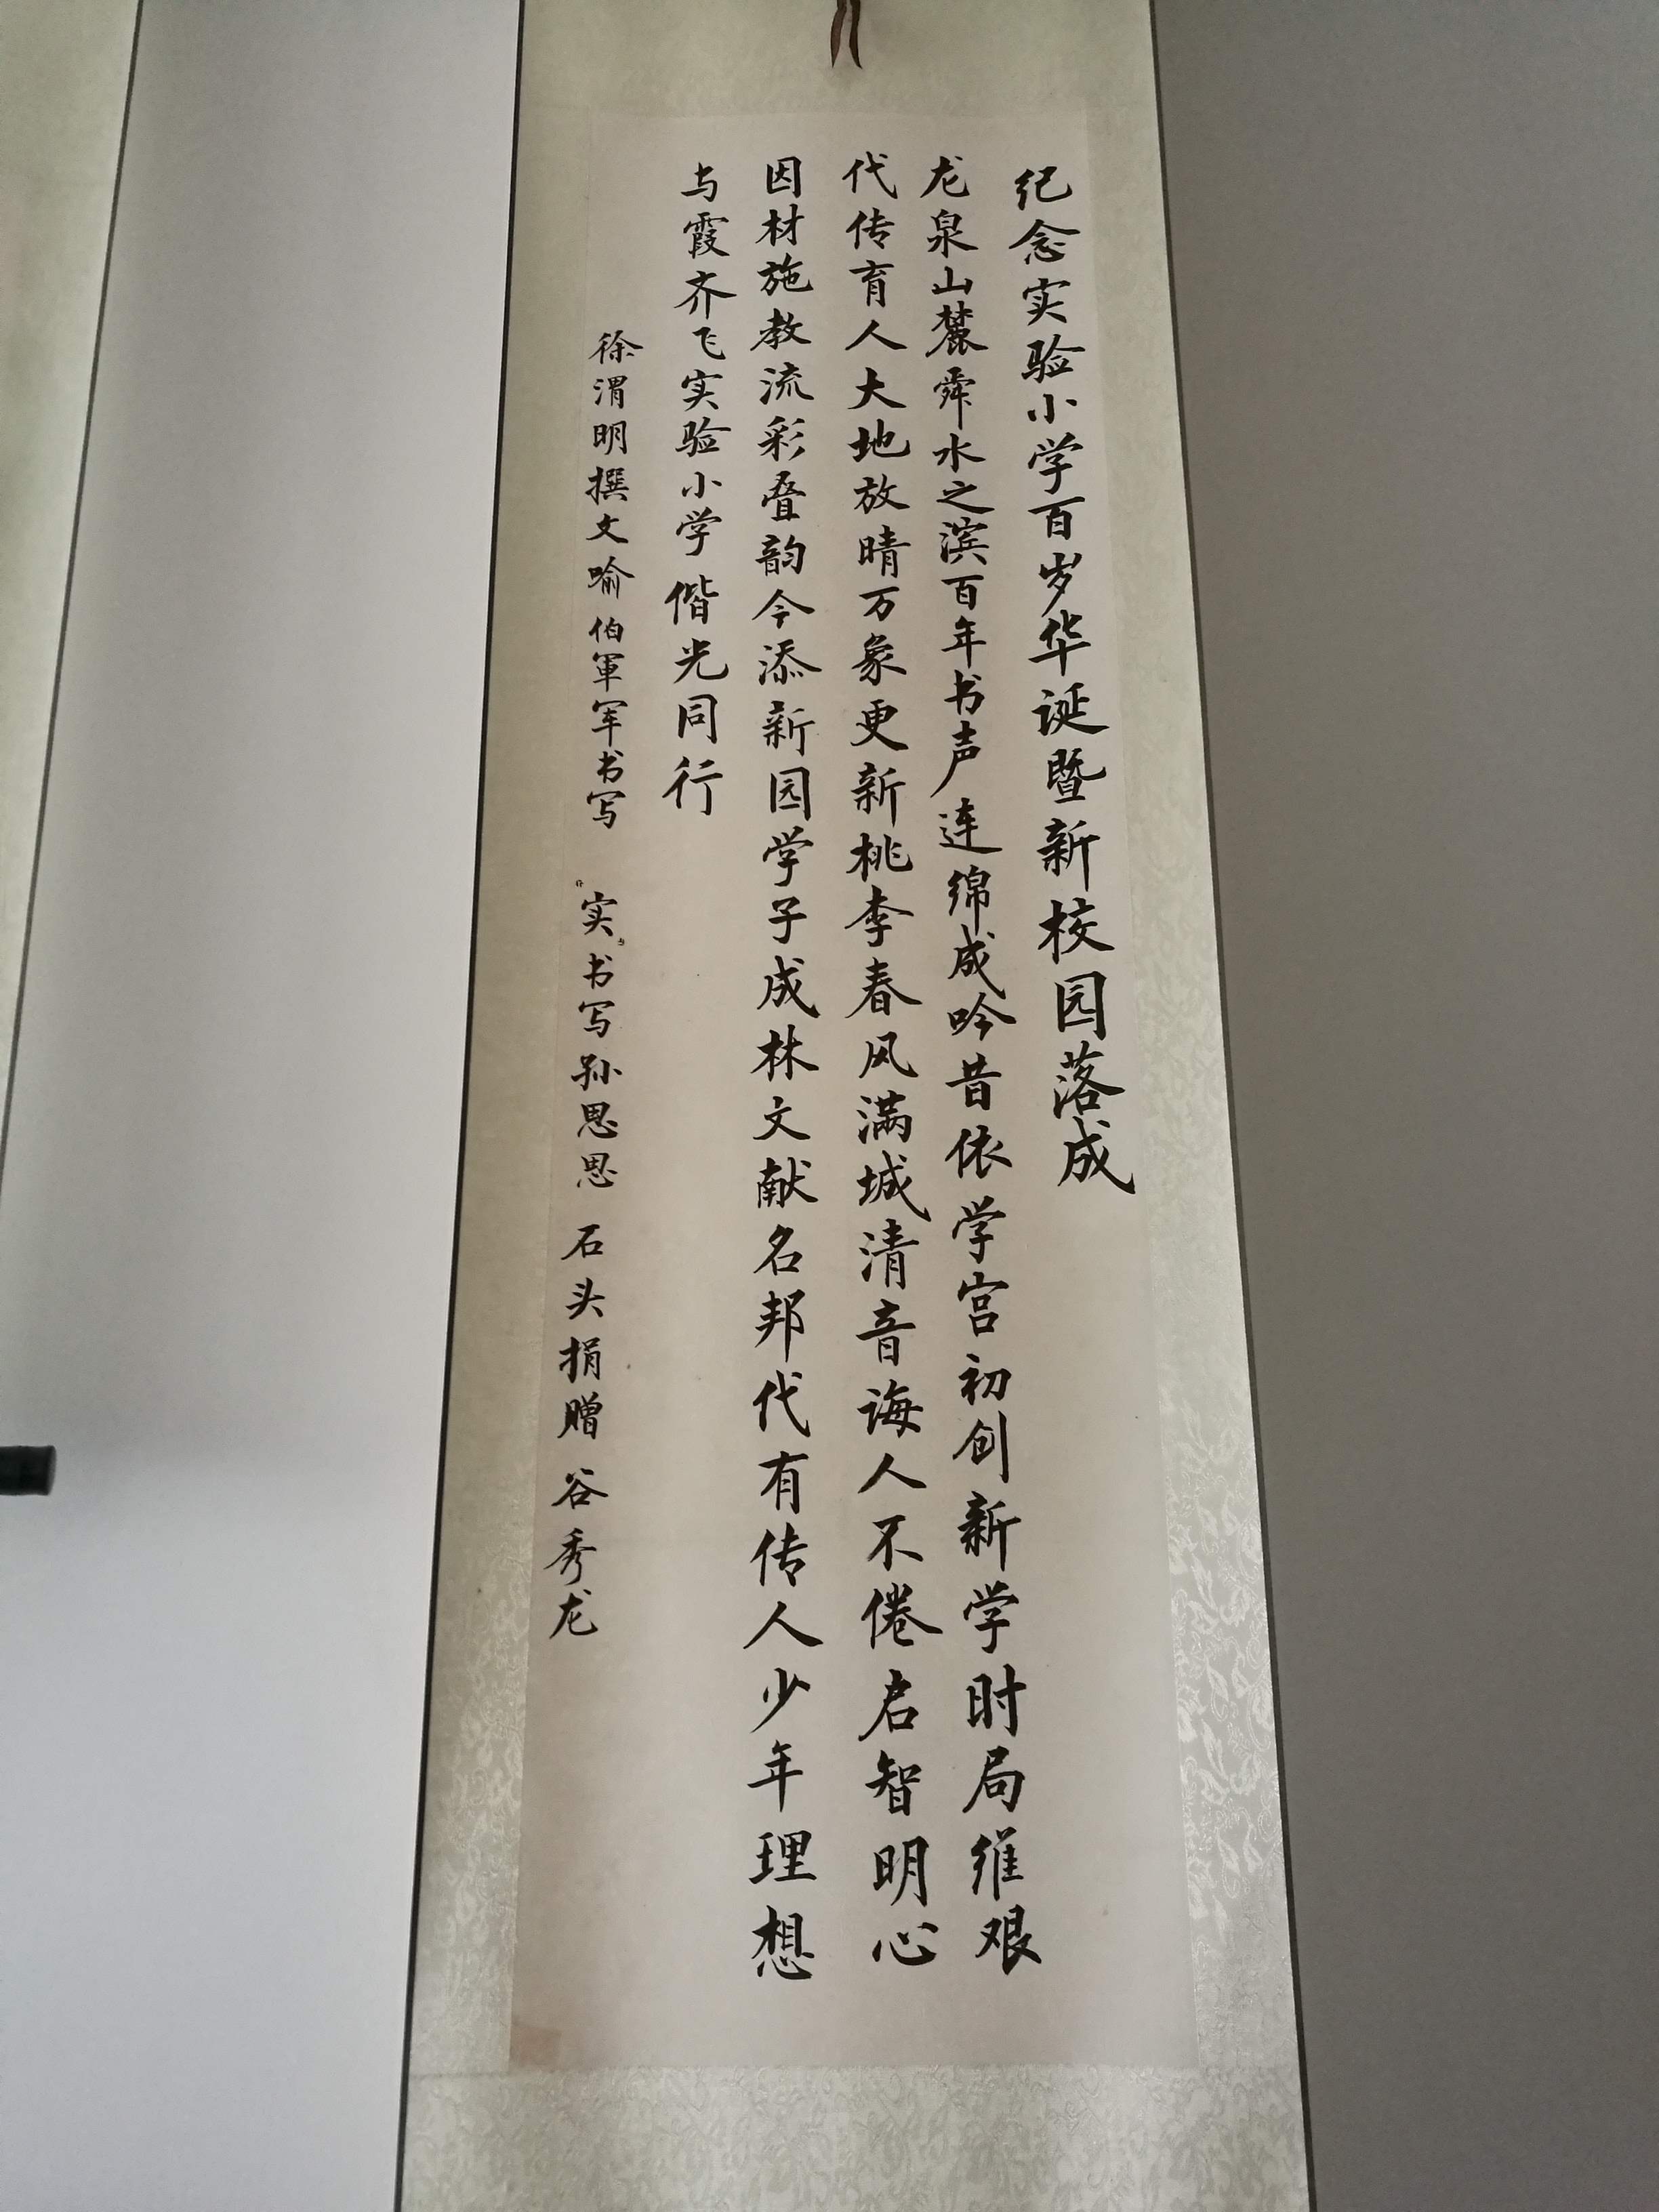 纪念实验小学百岁华诞暨新校园落成
龙泉山麓舜水之滨百年书声连绵成吟昔依学宫初创新学时局维艰
代传育人大地放晴万象更新桃李春风满城清音诲人不倦启智明心
因材施教流彩叠韵今添新园学子成林文献名邦代有传人少年理想
与霞齐飞实验小学偕光同行
徐渭明撰文喻伯軍军书写 “实”书写孙思思 石头捐赠 谷秀龙